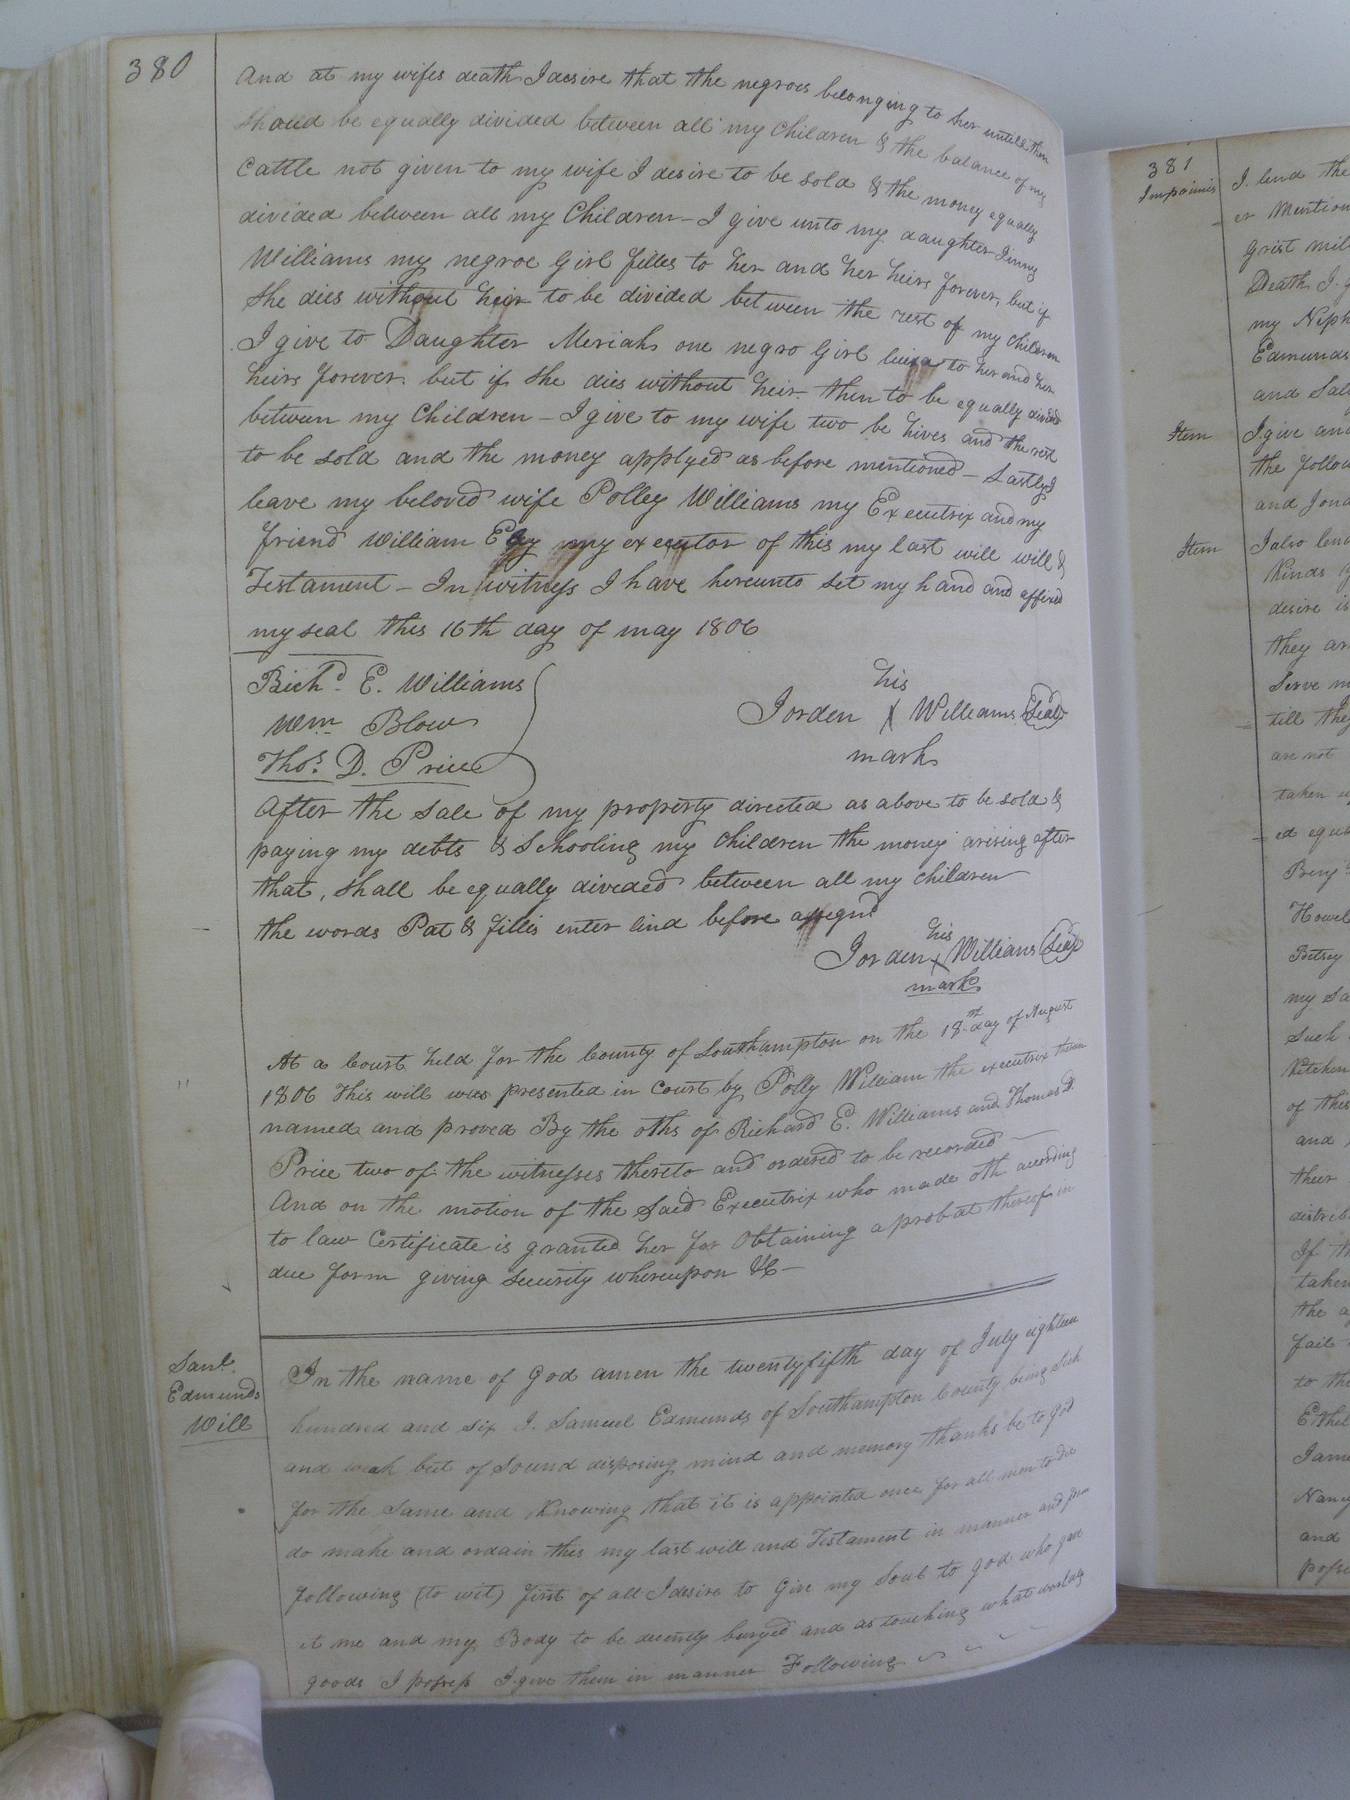 380
And at my wifes death I desire that the negroes belonging to her untill then
should be equally divided between all my Children & the balance of my
Cattle not given to my wife I desire to be sold & the money equally
divided between all my Children – I give unto my daughter Jinny
Williams my negroe Girl filles to her and her heirs forever, but if
she dies without heir to be divided between the rest of my children
I give to Daughter Meriah one negro Girl to her and her
heirs forever but if she dies without heir then to be equally divided
between my Children – I give to my wife two be hives and the rest
to be sold and the money applyed as before mentioned – Lastly I
leave my beloved wife Polley Williams my Executrix and my
friend William my executor of this my last will will &
Testament – In witness I have hereunto set my hand and affixed
my seal this 16th day of may 1806
Richd. E. Williams
Wm Blow
Thos. D. Price
his
Jorden X Williams (Seal)
mark
After the sale of my property directed as above to be sold &
paying my debts & Schooling my children the money arising after
that, shall be equally divided between all my children
the words Pat & fillis enter lind before assegnd
his
Jorden X Williams (Seal)
mark
At a Court held for the County of Southampton on the 18th day of August
1806 This will was presented in Court by Polly William the executrix therein
named and proved By the oths of Richard E. Williams and Thomas D.
Price two of the witnesses thereto and ordered to be recorded
And on the motion of the Said Executrix who made oth according
to law Certificate is granted her for Obtaining a probat thereof in
due form giving security whereupon &C –
Saml.
Edmunds
Will
In the name of God amen the twentyfifth day of July eighteen
hundred and six I. Samuel Edmunds of Southampton County being Sick
and weak but of Sound disposing mind and memory thanks be to God
for the Same and Knowing that it is appointed once for all men to die
do make and ordain this my last will and Testament in manner and form
following (to wit) first of all I desire to Give my Soul to god who gave
it me and my Body to be decently buryed and as touching what worldly
goods I possess I give them in manner Following
381
Impaimis
I. lend the
er Mention
Grist mil
Death I. g
my Neph
Edmunds
and Sal
Item
I give and
the follow
and Jona
Item
I also lend
Kinds
desire is
they ar
Serve m
till they
are not
taken u
ed equa
Benj
Howel
Betsey
my Sa
Such
Kitchen
of this
and
their
distrib
If th
taken
the a
fail
to the
Ethel
Jame
Nancy
and
posse